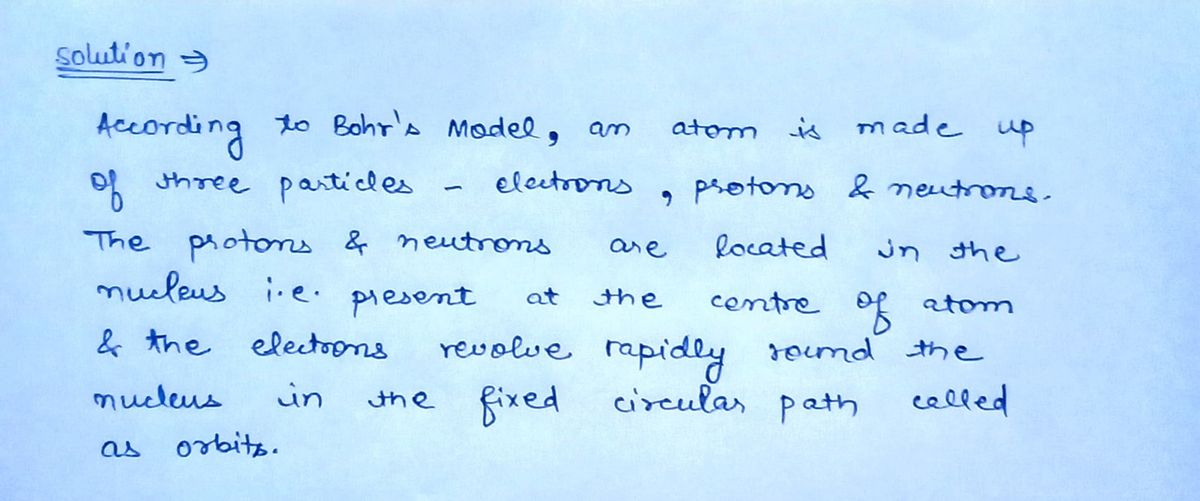 solution ⇒
According to Bohr's Model, an atom is made up
of three particles - electrons, protons & neutrons.
The protons & neutrons are located in the
nucleus i.e. present at the centre of atom
& the electrons revolve rapidly round the
nucleus in the fixed circular path called
as orbits.